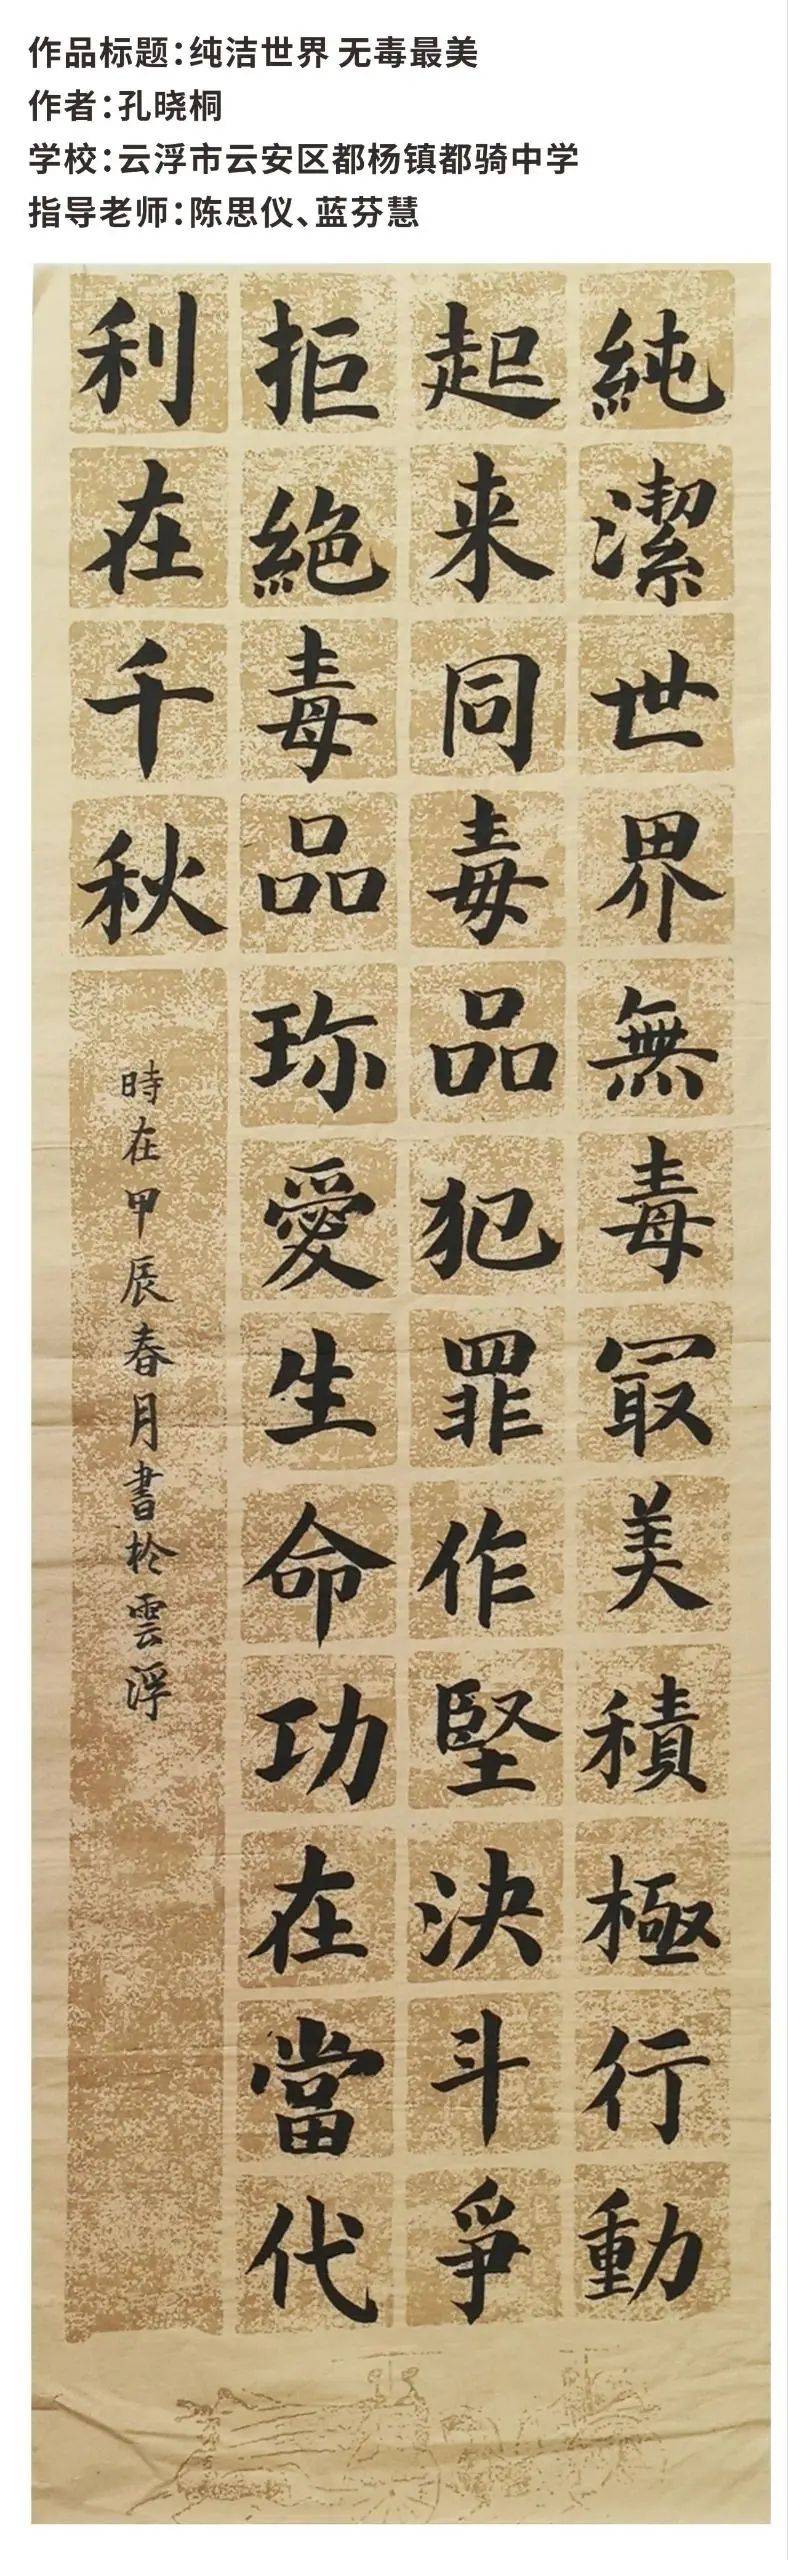 作品标题：纯洁世界 无毒最美
作者：孔晓桐
学校：云浮市云安区都杨镇都骑中学
指导老师：陈思仪、蓝芬慧
純潔世界無毒冣美積極行動
起来同毒品犯罪作堅決斗爭
拒絶毒品珎愛生命功在當代
利在千秋
時在甲辰春月書於雲浮